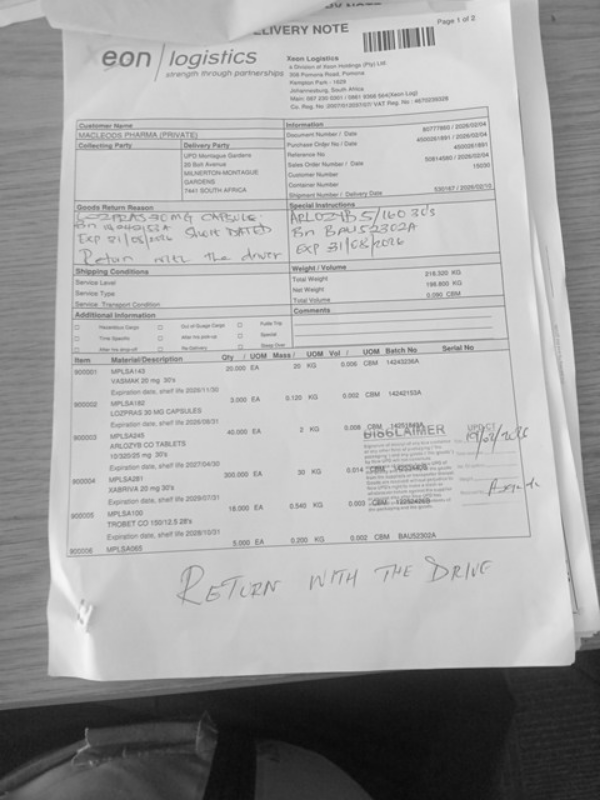 DELIVERY NOTE
Page 1 of 2
eon | logistics
strength through partnerships
Xeon Logistics
a Division of Xeon Holdings (Pty) Ltd.
308 Pomona Road, Pomona
Kempton Park - 1629
Johannesburg, South Africa
Customer Name
MACLEODS PHARMA (PRIVATE)
Collecting Party
Delivery Party
UPD Montague Gardens
MILNERTON-MONTAGUE
GARDENS
7441 SOUTH AFRICA
Information
Document Number / Date 80777860 / 2026/02/04
Purchase Order No / Date 4500281891 / 2026/02/04
Reference No 4500281891
Sales Order Number / Date 50814580 / 2026/02/04
Customer Number 15030
Container Number
Shipment Number / Delivery Date 530167 / 2026/02/10
Goods Return Reason
LOZPRAS 30MG CAPSULE
Exp 31/08/2026 SHORT DATED
Return with the driver
Special Instructions
ARLOZYB 5/160 30's
Bn BAU52302A
EXP 31/08/2026
Shipping Conditions
Service Level
Service Type
Service: Transport Condition
Weight / Volume
Total Weight 218.320 KG
Net Weight 198.800 KG
Total Volume 0.090 CBM
Additional Information
Hazardous Cargo
Out of Guage Cargo
Futile Trip
Time Specific
After Hrs pick-up
Special
After Hrs drop-off
Re-Delivery
Sleep Over
Comments
Item Material/Description Qty / UOM Mass / UOM Vol / UOM Batch No Serial No
900001 MPLSA143 20.000 EA 20 KG 0.006 CBM 14243236A
VASMAK 20 mg 30's
Expiration date, shelf life 2026/11/30
900002 MPLSA182 3.000 EA 0.120 KG 0.002 CBM 14242153A
LOZPRAS 30 MG CAPSULES
Expiration date, shelf life 2026/08/31
900003 MPLSA245 40.000 EA 2 KG 0.008 CBM
ARLOZYB CO TABLETS
10/320/25 mg 30's
Expiration date, shelf life 2027/04/30
900004 MPLSA281 300.000 EA 30 KG 0.014 CBM
XABRIVA 20 mg 30's
Expiration date, shelf life 2029/07/31
900005 MPLSA100 18.000 EA 0.540 KG 0.003 CBM
TROBET CO 150/12.5 28's
Expiration date, shelf life 2028/10/31
900006 MPLSA065 5.000 EA 0.200 KG 0.002 CBM BAU52302A
DISCLAIMER
RETURN WITH THE DRIVE